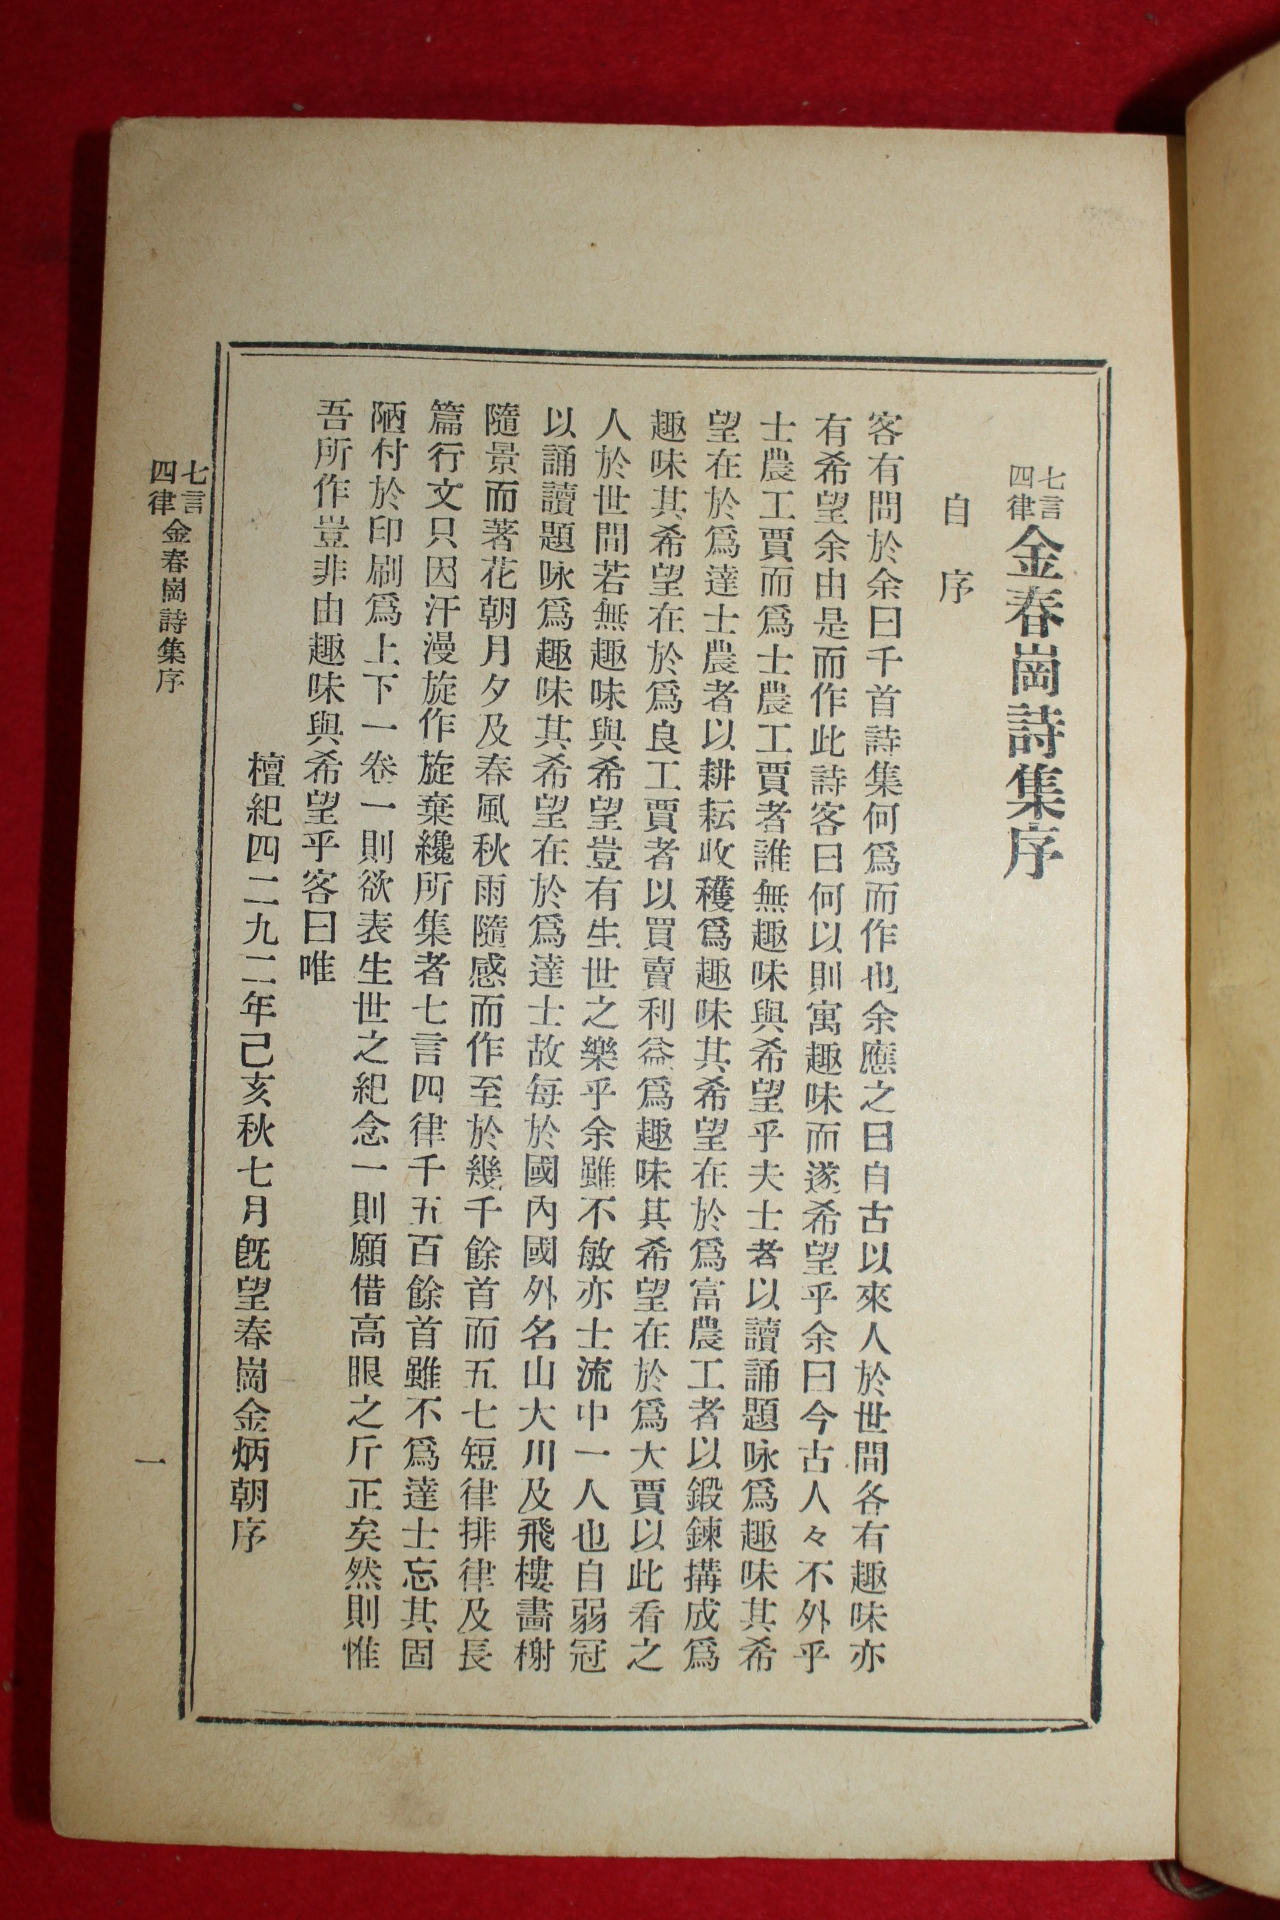 七言四律金春崗詩集序
自序
客有問於余曰千首詩集何爲而作也余應之曰自古以來人於世間各有趣味亦
有希望余由是而作此詩客曰何以則寓趣味而遂希望乎余曰今古人々不外乎
士農工賈而爲士農工賈者誰無趣味與希望乎夫士者以讀誦題咏爲趣味其希
望在於爲達士農者以耕耘收穫爲趣味其希望在於爲富農工者以鍛鍊搆成爲
趣味其希望在於爲良工賈者以買賣利益爲趣味其希望在於爲大賈以此看之
人於世間若無趣味與希望豈有生世之樂乎余雖不敏亦士流中一人也自弱冠
以誦讀題咏爲趣味其希望在於爲達士故每於國內國外名山大川及飛樓畵榭
隨景而著花朝月夕及春風秋雨隨感而作至於幾千餘首而五七短律排律及長
篇行文只因汗漫旋作旋棄纔所集者七言四律千五百餘首雖不爲達士忘其固
陋付於印刷爲上下一卷一則欲表生世之紀念一則願借高眼之斤正矣然則惟
吾所作豈非由趣味與希望乎客曰唯
檀紀四二九二年己亥秋七月旣望春崗金炳朝序
七言四律金春崗詩集序
一